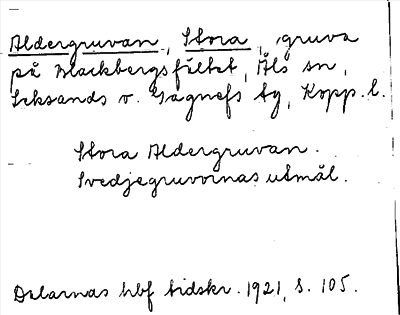 Aldergruvan, Stora, gruva
på Blackbergsfältet, Åls sn,
Leksands o. Gagnefs tg, Kopp. l.
Stora Aldergruvan.
Svedjegruvornas utmål.
Dalarnas hbf tidskr. 1921, s. 105.